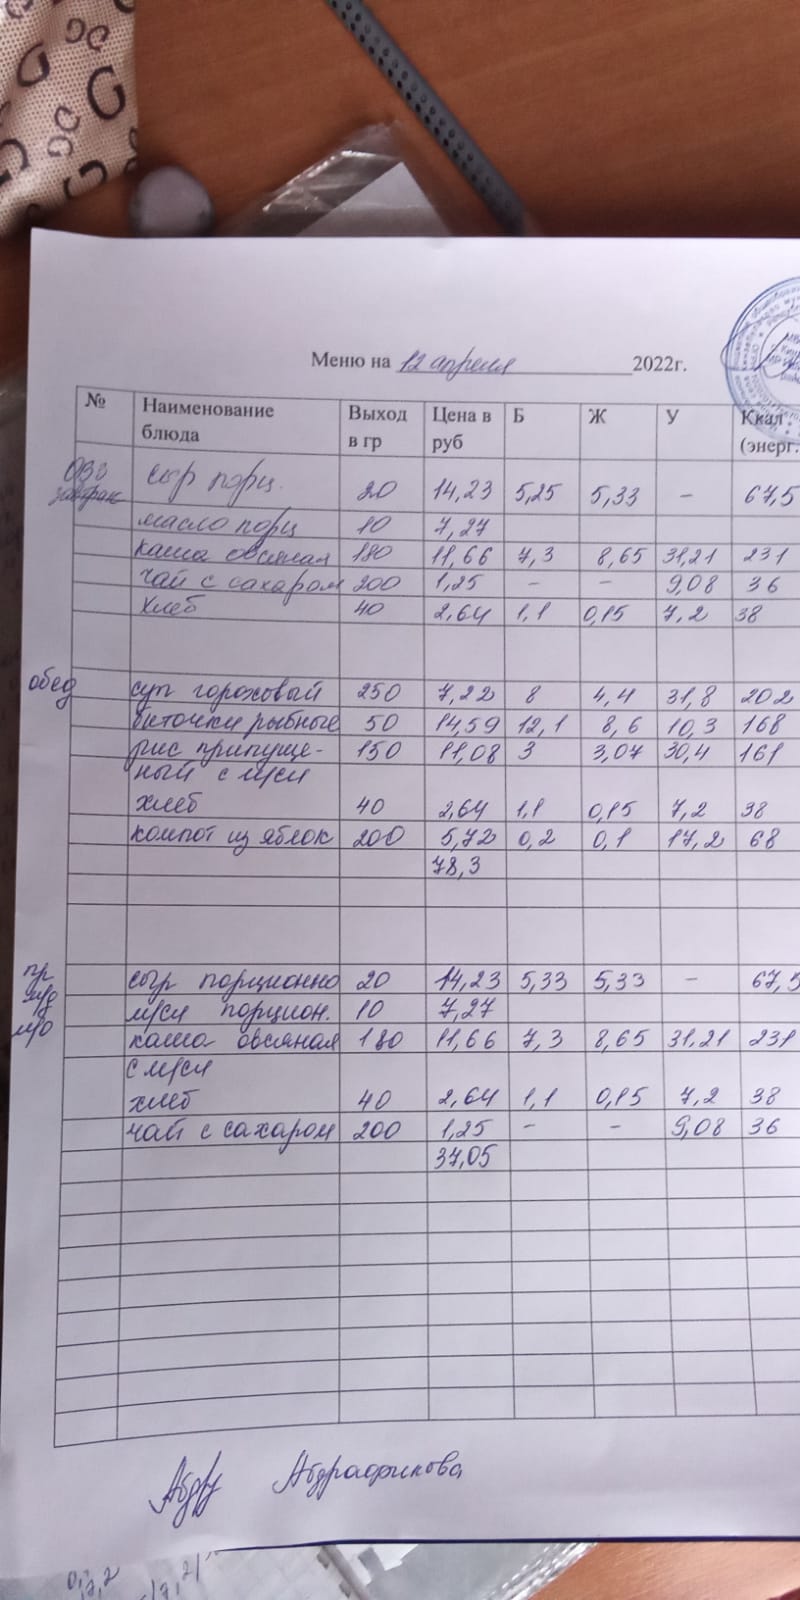 Меню на 12 апреля 2022г.
№ Наименование блюда Выход в гр Цена в руб Б Ж У Ккал (энерг.
ОВЗ завтрак сыр порц. 20 14,23 5,25 5,33 – 67,5
масло порц 10 7,27
каша овсяная 180 11,66 7,3 8,65 31,21 231
чай с сахаром 200 1,25 – – 9,08 36
хлеб 40 2,64 1,1 0,15 7,2 38
обед суп гороховый 250 7,22 8 4,4 31,8 202
биточки рыбные 50 14,59 12,1 8,6 10,3 168
рис припуще- 150 11,08 3 3,07 30,4 161
ный с м/сл
хлеб 40 2,64 1,1 0,15 7,2 38
компот из яблок 200 5,72 0,2 0,1 17,2 68
78,3
сыр порционно 20 14,23 5,33 5,33 – 67,5
м/сл порцион. 10 7,27
м/о каша овсяная 180 11,66 7,3 8,65 31,21 231
с м/сл
хлеб 40 2,64 1,1 0,15 7,2 38
чай с сахаром 200 1,25 – – 9,08 36
37,05
Абдрафикова